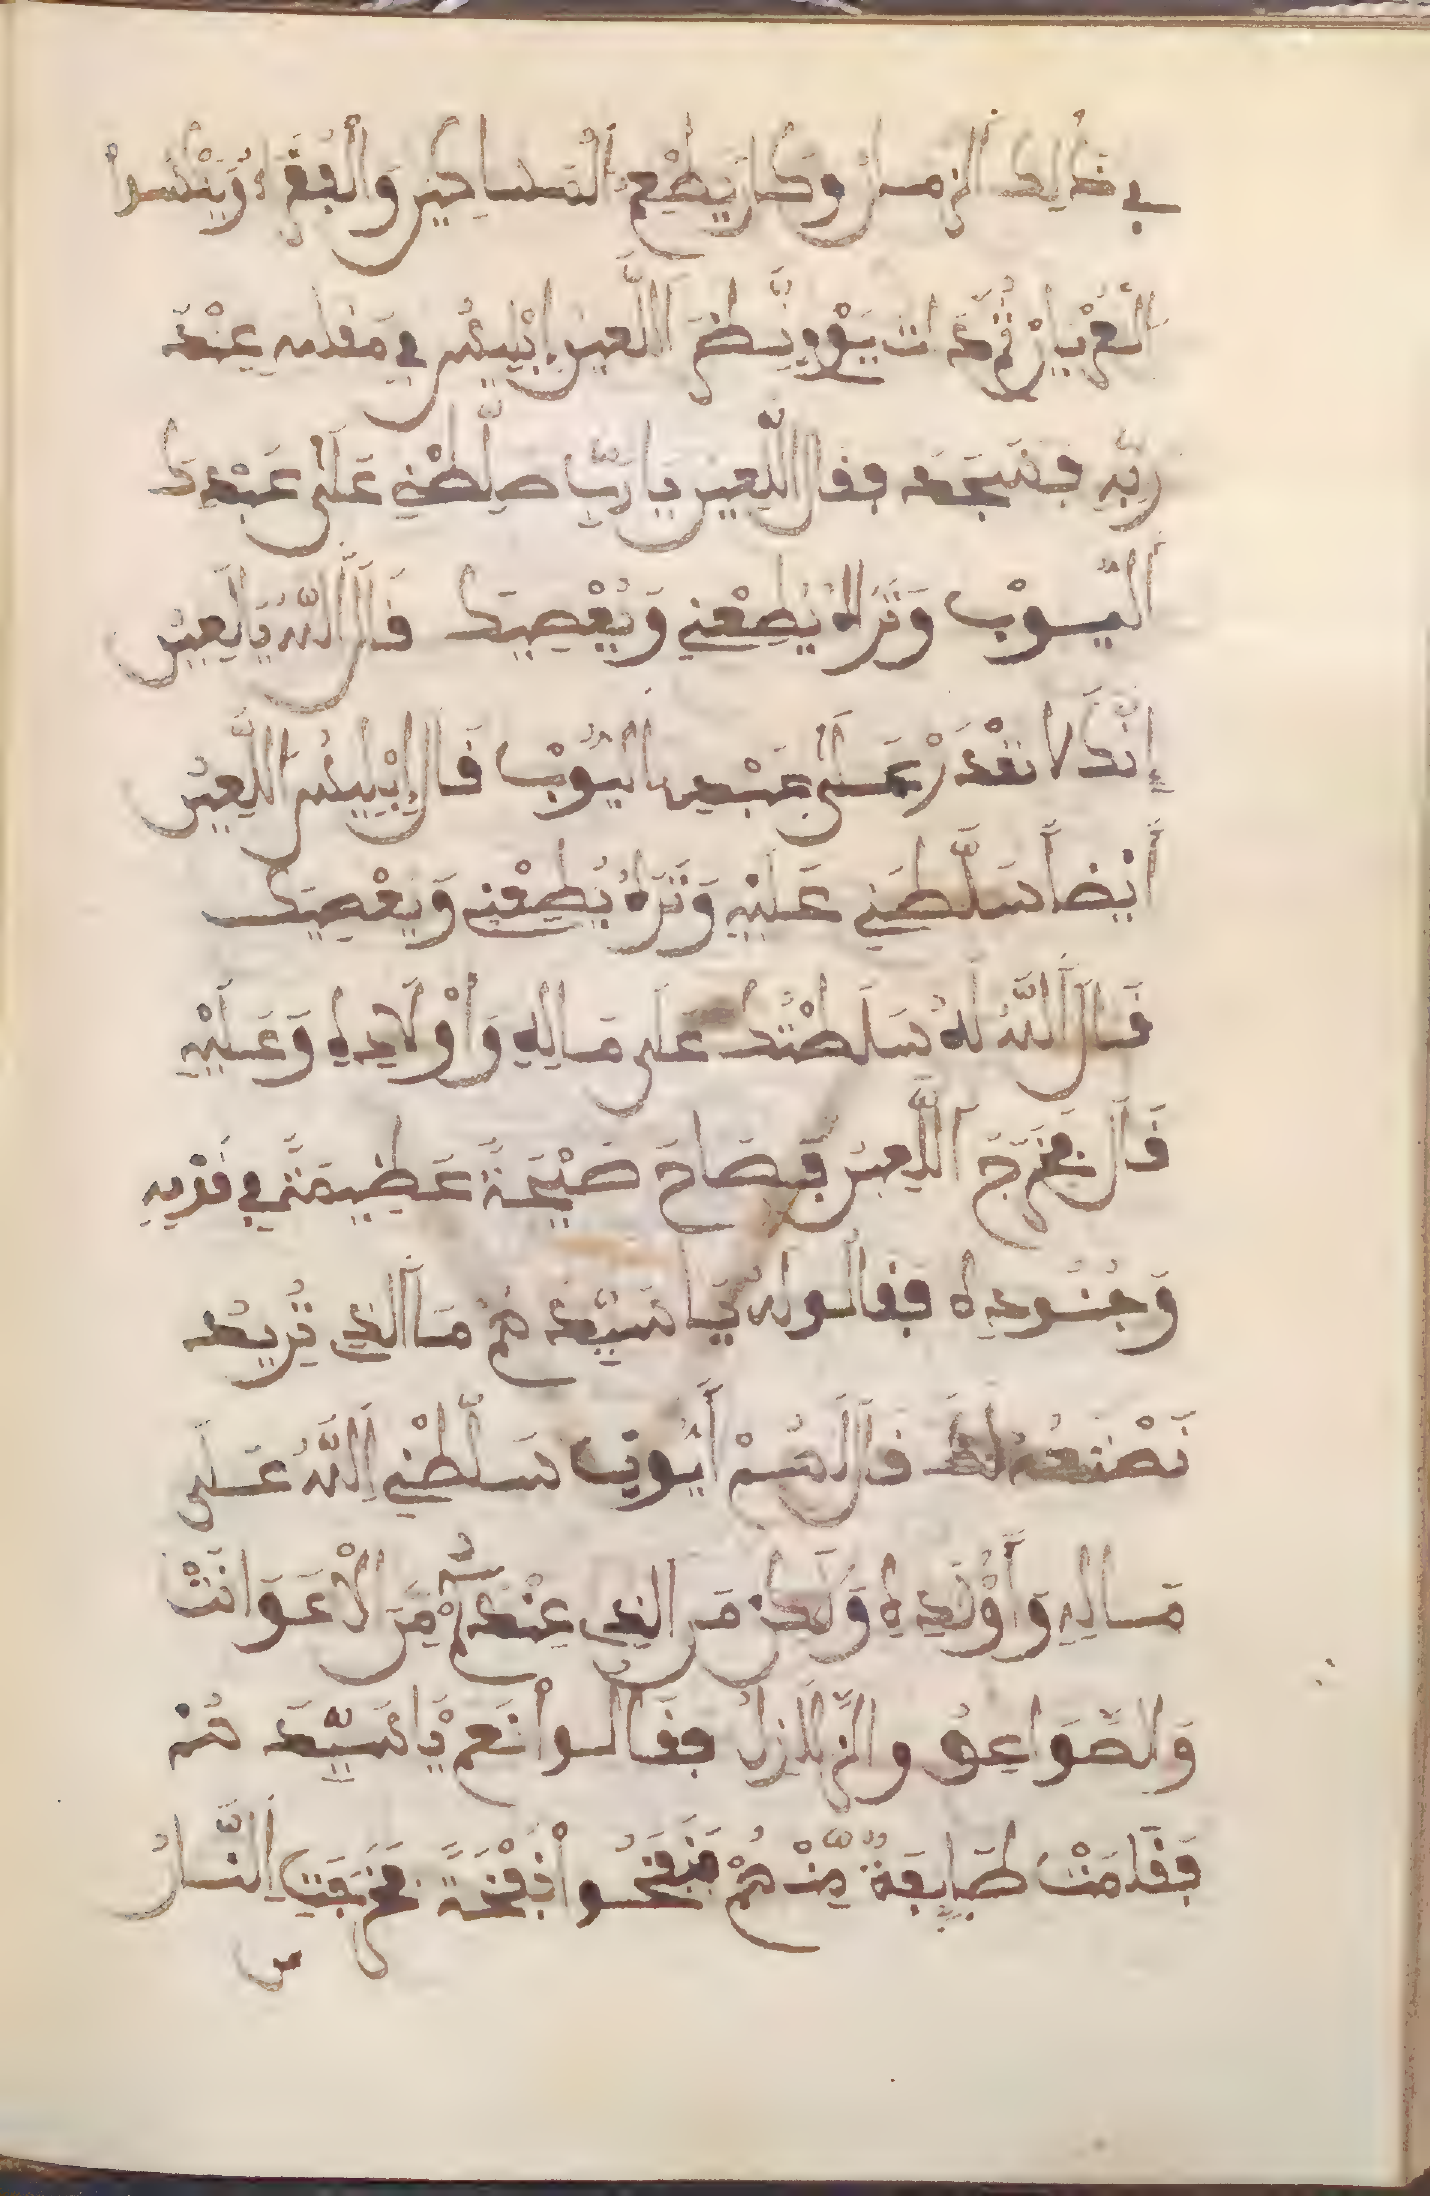 في ذٰلك الزمان وكان يطعم المساكين والفقراء ويكسوا
العريان ثم ذات يوم نظر اللعين إبليس في مقامه عند
ربه فسجد فقال اللعين يا رب صلطني على عبدك
اَيّوب وَتَرَاهُ يُطِعْني وَيُعْصِيك قَالَ اَللّه يَا لَعِين
إنك لا تقدَرْ عَلى عبْدي ايّوب قَال إبْلِيس اللّعِين
أيْضاً سَلَّطني عَلَيْهِ وَتَرَاهُ يُطِيعْني وَيَعْصِيك
قَالَ اَللّهُ لَهُ سَلَطْتُك عَلى مَالِهِ وَأوْلَادِهِ وَعَلَيْهِ
قَالَ فَخَرَجَ اَللّعِين فَصَاحَ صَيْحَةً عَظِيمَة في قومه
وَجُنُودِهِ فَقالوا له يَا سَيّدهُمْ مَا الذي تُرِيد
نَصْنَعُهُ لَك قَالَ لَهُمْ أَيُّوب سَلّطْني اَللّهُ عَلى
مَالِهِ وَأَوْلَدِهِ وَلَكِن مَن الذي عِنْدَكُمْ مِنَ الْأَعْوَانتْ
وَالصَّوَاعِق والزّلازل فَقَالُوا نَعم يَا سَيِّدَهُمْ
فَقَامَتْ طَايفَةٌ مِّنْهُمْ فَنَفَخُوا نَفْخَةً فَخَرَجَتِ اَلنَّار